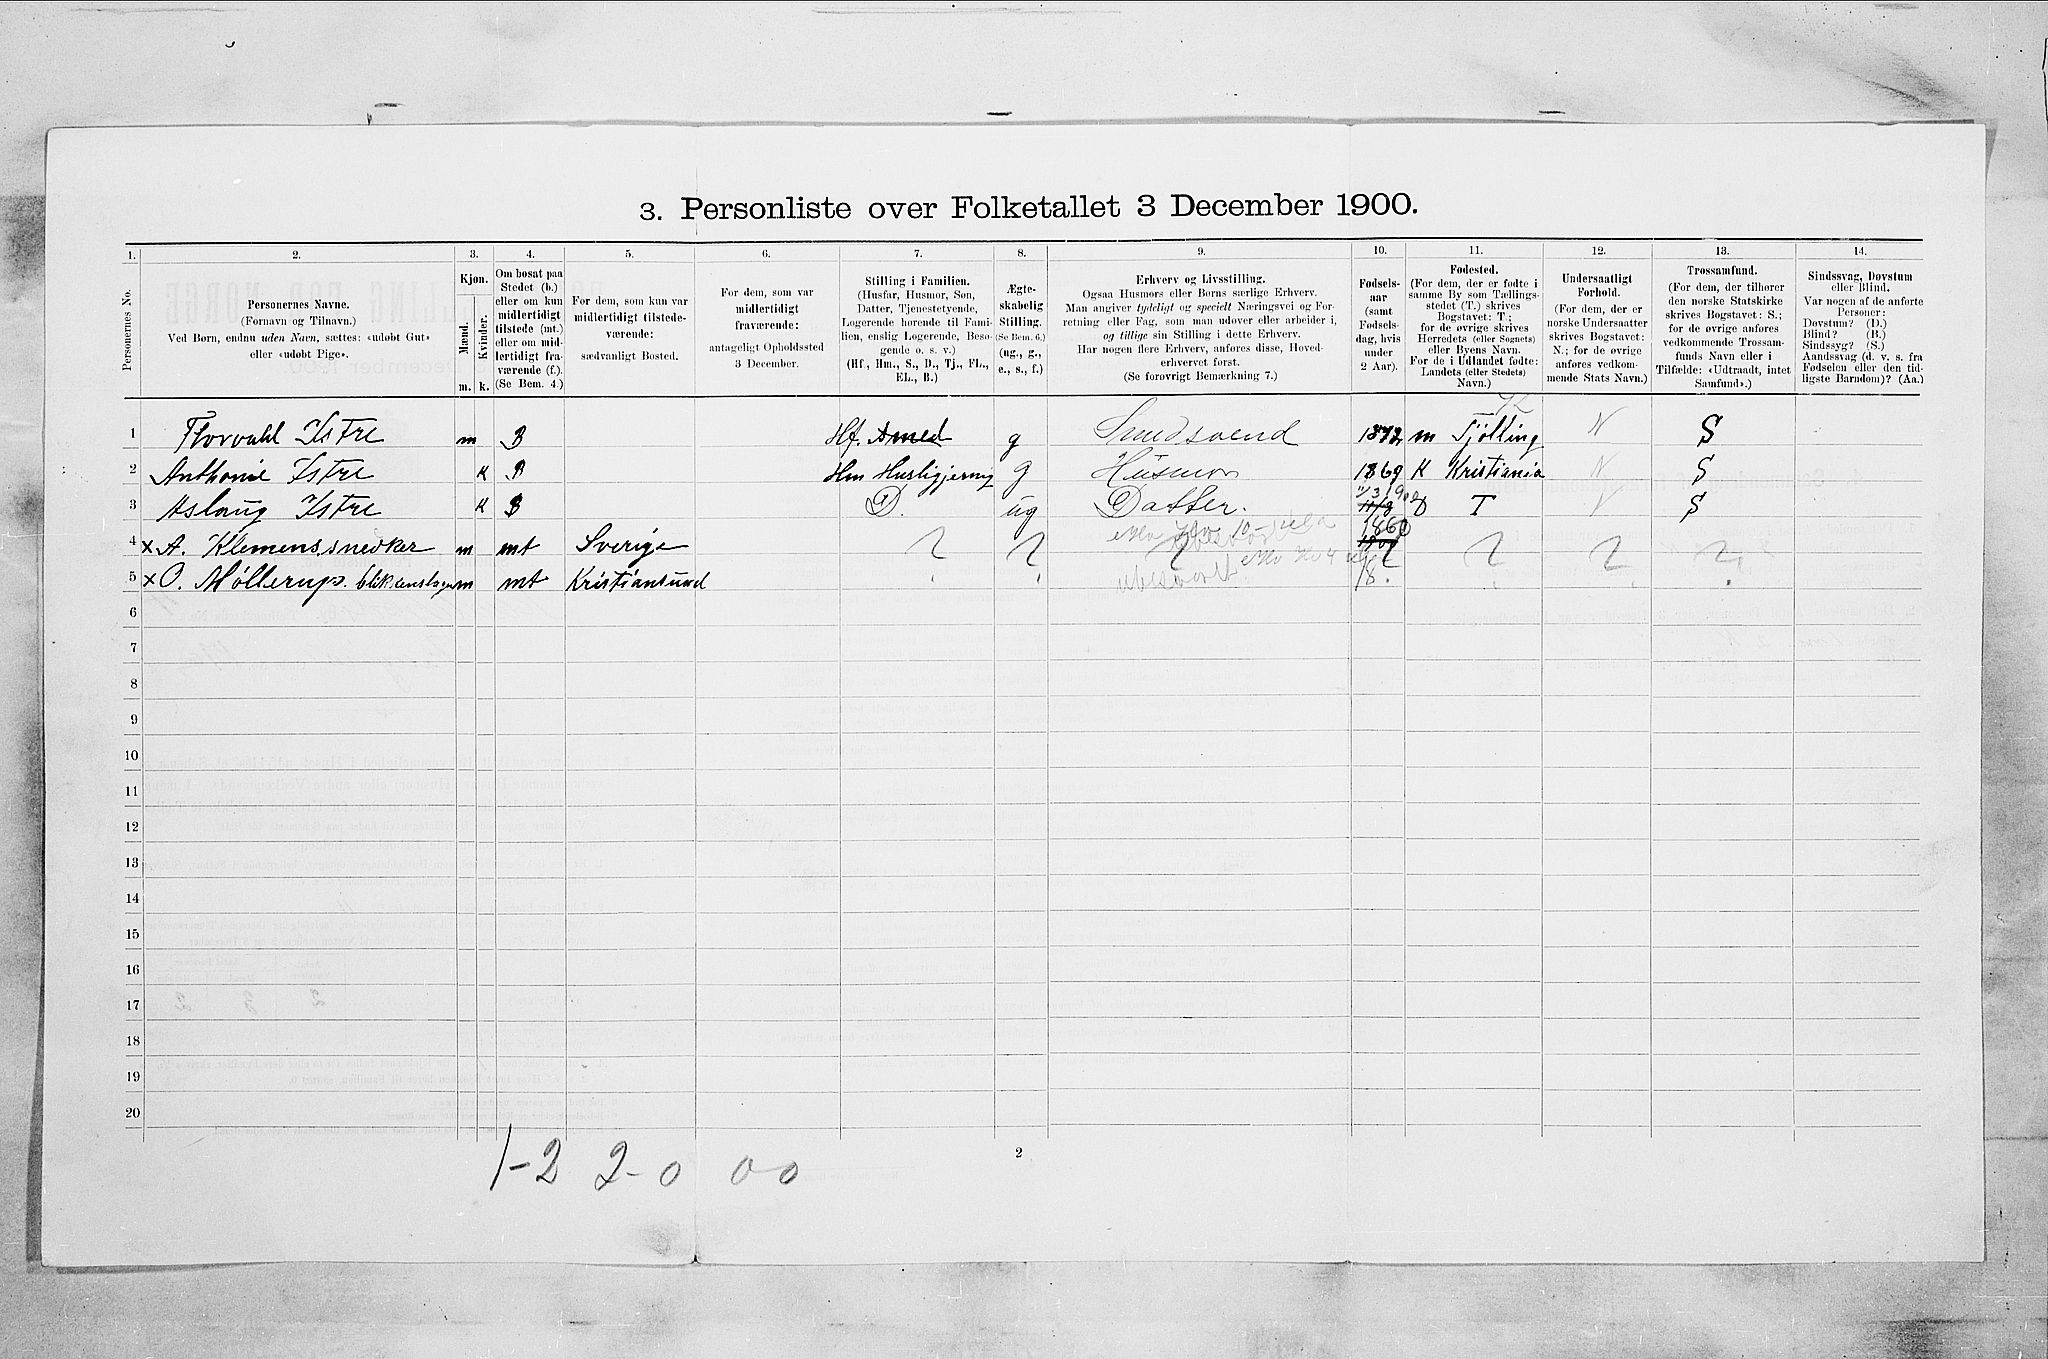 3. Personliste over Folketallet 3 December 1900.
1. 2. 3. 4. 5. 6. 7. 8. 9. 10. 11. 12. 13. 14.
Personernes No.
Personernes Navne.
(Fornavn og Tilnavn.)
Ved Børn, endnu uden Navn, sættes: «udøbt Gut»
eller «udøbt Pige».
Kjøn.
Mænd.
Kvinder.
m. k.
Om bosat paa
Stedet (b.)
eller om kun
midlertidigt
tilstede (mt.)
eller om mid-
lertidigt fra-
værende (f.).
(Se Bem. 4.)
For dem, som kun var
midlertidigt tilstede-
værende:
sædvanligt Bosted.
For dem, som var
midlertidigt
fraværende:
antageligt Opholdssted
3 December.
Stilling i Familien.
(Husfar, Husmor, Søn,
Datter, Tjenestetyende,
Logerende hørende til Fami-
lien, enslig Logerende, Besø-
gende o. s. v.)
(Hf., Hm., S., D., Tj., FL.,
EL., B.)
Ægte-
skabelig
Stilling.
(Se Bem. 6.)
(ug., g.,
e., s., f.)
Erhverv og Livsstilling.
Ogsaa Husmors eller Børns særlige Erhverv.
Man angiver tydeligt og specielt Næringsvei og For-
retning eller Fag, som man udøver eller arbeider i,
og tillige sin Stilling i dette Erhverv.
Har nogen flere Erhverv, anføres disse, Hoved-
erhvervet først.
(Se forøvrigt Bemærkning 7.)
Fødsels-
aar
(samt
Fødsels-
dag, hvis
under
2 Aar).
Fødested.
(For dem, der er fødte i
samme By som Tællings-
stedet (T.) skrives
Bogstavet: T;
for de øvrige skrives
Herredets (eller Sognets)
eller Byens Navn.
For de i Udlandet fødte:
Landets (eller Stedets)
Navn.)
Undersaatligt
Forhold.
(For dem, der er
norske Undersaatter
skrives Bogstavet:
N.; for de øvrige
anføres vedkom-
mende Stats Navn.)
Trossamfund.
(For dem, der tilhører
den norske Statskirke
skrives Bogstavet: S.;
for de øvrige anføres
vedkommende Trossam-
funds Navn eller i
Tilfælde: «Udtraadt, intet
Samfund».)
Sindssvag, Døvstum
eller Blind.
Var nogen af de anførte
Personer:
Døvstum? (D.)
Blind? (B.)
Sindssyg? (S.)
Aandssvag (d. v. s. fra
Fødselen eller den tid-
ligste Barndom)? (Aa.)
1 Thorvahl Istre m B Hf. Smed g Smedsvend 1872 m Tjølling N S
2 Anthonie Istre K B Hm Husligjerning g Husmor 1869 K Kristiania N S
3 Aslaug Istre K B D. ug Datter. 11/3 1900 T S
4 x A. Klemens, snedker m mt Sverige ? ? ? 1860 ? ? ?
5 x O. Møllerup. blikkenslager m mt Kristiansund ubesvart 18
6
7
8
9
10
11
12
13
14
15
16
17
18
19
20
1-2 2-0 0-0
2